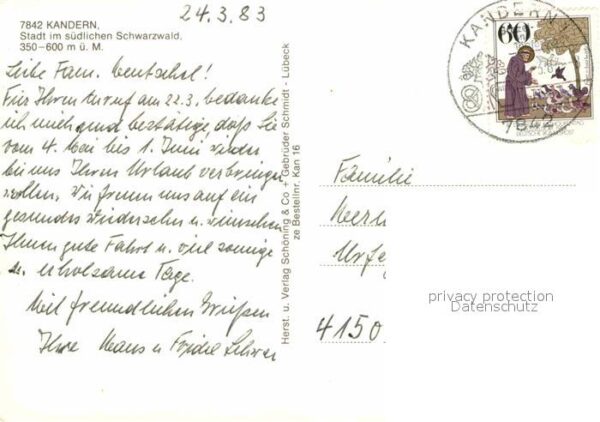 24.3.83
7842 KANDERN,
Stadt im südlichen Schwarzwald,
350–600 m ü. M.
Liebe Fam. !
Für Ihren Anruf am 22.3. bedanke
ich mich und bestätige, daß Sie
vom 4. Mai bis 1. Juni wieder
bei uns Ihren Urlaub verbringen
wollen. Wir freuen uns auf ein
gesundes Wiedersehn u. wünschen
Ihnen gute Fahrt u. viel sonnige
u. erholsame Tage.
Mit freundlichen Grüßen
Ihre Hans u Frieda
Herst. u. Verlag Schöning & Co + Gebrüder Schmidt · Lübeck
ze Bestellnr. Kan 16
KANDERN 1
60
7842
Familie
4150
privacy protection
Datenschutz